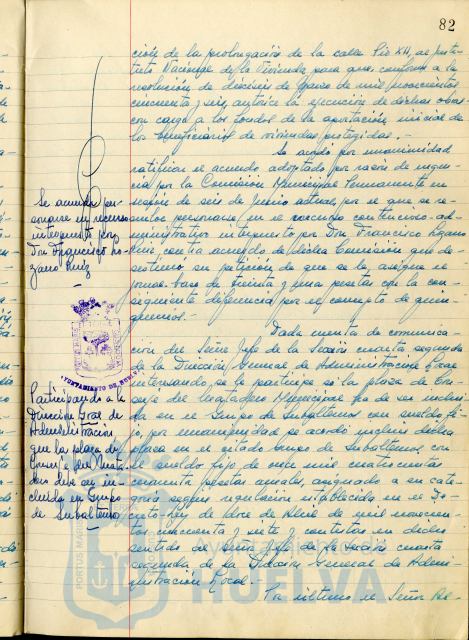 82
ción de la prolongación de la calle Pío XII, al Insti-
tuto Nacional de la Vivienda para que, conforme a la
resolución de dieciseis de Marzo de mil novecientos
cincuenta y seis, autorice la ejecución de dichas obras
con cargo a los fondos de la aportación inicial de
los beneficiarios de viviendas protegidas.-
Se acordó por unanimidad
ratificar el acuerdo adoptado por razón de urgen-
cia por la Comisión Municipal Permanente en
sesión de seis de Junio actual, por el que se re-
suelve personarse, en el recurso contencioso-ad-
ministrativo interpuesto por Don Francisco Lozano
Ruiz, contra acuerdo de dicha Comisión que de-
sestimó su petición de que se le asigne el
jornal-base de treinta y una pesetas con la con-
siguiente diferencia por el concepto de quin-
quenios.-
Dada cuenta de comunica-
ción del Señor Jefe de la Sección cuarta segunda
de la Dirección General de Administración Local
interesando se le participe si la plaza de Con-
serje del Matadero Municipal ha de ser inclui-
da en el Grupo de Subalternos con sueldo fi-
jo, por unanimidad se acordó incluir dicha
plaza en el citado Grupo de Subalternos, con
el sueldo fijo, de once mil cuatrocientas
cincuenta pesetas anuales, asignado a su cate-
goría según regulación establecida en el De-
creto-Ley de doce de Abril de mil novecien-
tos cincuenta y siete y contestar en dicho
sentido al Señor Jefe de la Sección cuarta
segunda de la Dirección General de Admini-
stración Local.-
Por último el Señor Al-
Se acuerda per-
sonarse en recurso
interpuesto por
Don Francisco Lo-
zano Ruiz
AYUNTAMIENTO DE HUELVA
Participando a la
Dirección Gral de
Administración
que la plaza de
Conserje del Mata-
dero debe ser in-
cluida en Grupo
de Subalternos
PORTUS MARIS
Ayuntamiento de
HUELVA